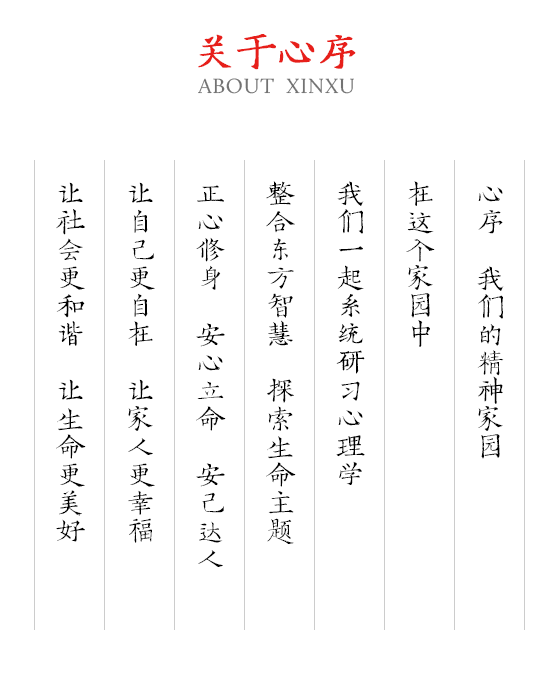 关于心序
ABOUT XINXU
心序 我们的精神家园
在这个家园中
我们一起系统研习心理学
整合东方智慧 探索生命主题
正心修身 安心立命 安己达人
让自己更自在 让家人更幸福
让社会更和谐 让生命更美好